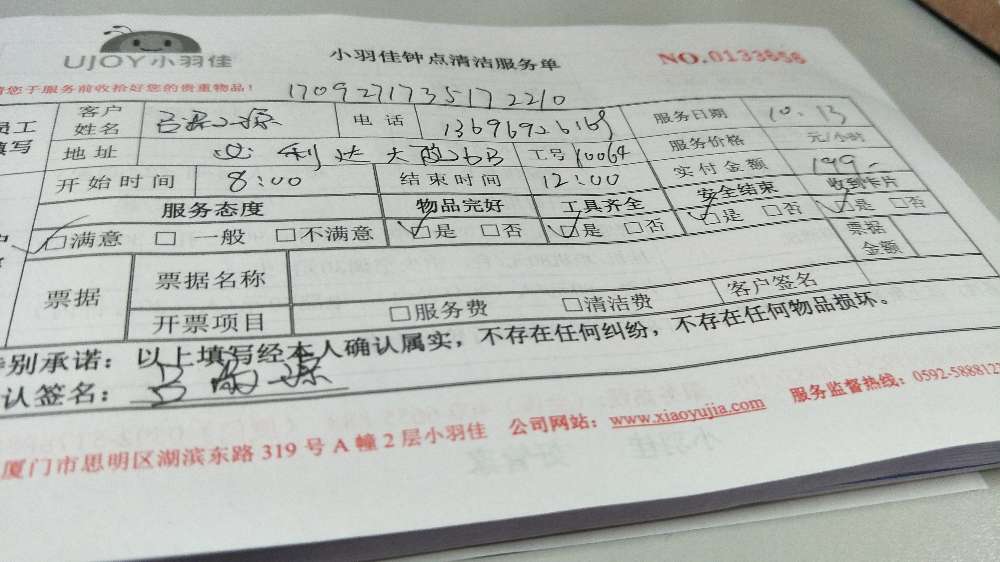 UJOY小羽佳
小羽佳钟点清洁服务单
NO.0133656
请您于服务前收拾好您的贵重物品!
1709271735172210
员工 填写
客户姓名 电话 13696926169 服务日期 10.13
地址 利达大 6B 工号 10064 服务价格 元/小时
开始时间 8:00 结束时间 12:00 实付金额 199
服务态度 物品完好 工具齐全 安全结束 收到卡片
□满意 □一般 □不满意 □是 □否 □是 □否 □是 □否 □是 □否
票据 票据名称 票据金额
开票项目 □服务费 □清洁费 客户签名
特别承诺：以上填写经本人确认属实，不存在任何纠纷，不存在任何物品损坏。
认签名：
厦门市思明区湖滨东路 319 号 A 幢 2 层小羽佳 公司网站：www.xiaoyujia.com 服务监督热线：0592-588812